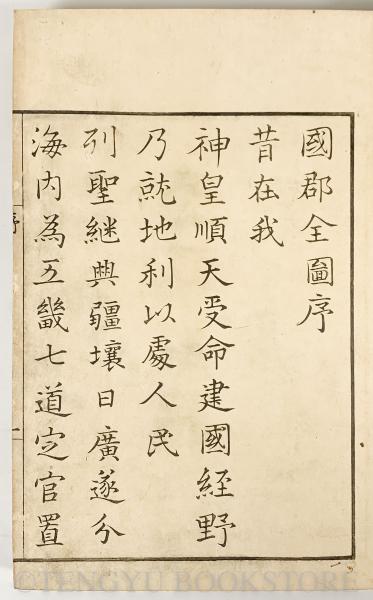 國郡全圗序
昔在我
神皇順天受命建國經野
乃就地利以處人民
列聖継興疆壤日廣遂分
海内為五畿七道定官置
序
一
©TENGYU BOOKSTORE